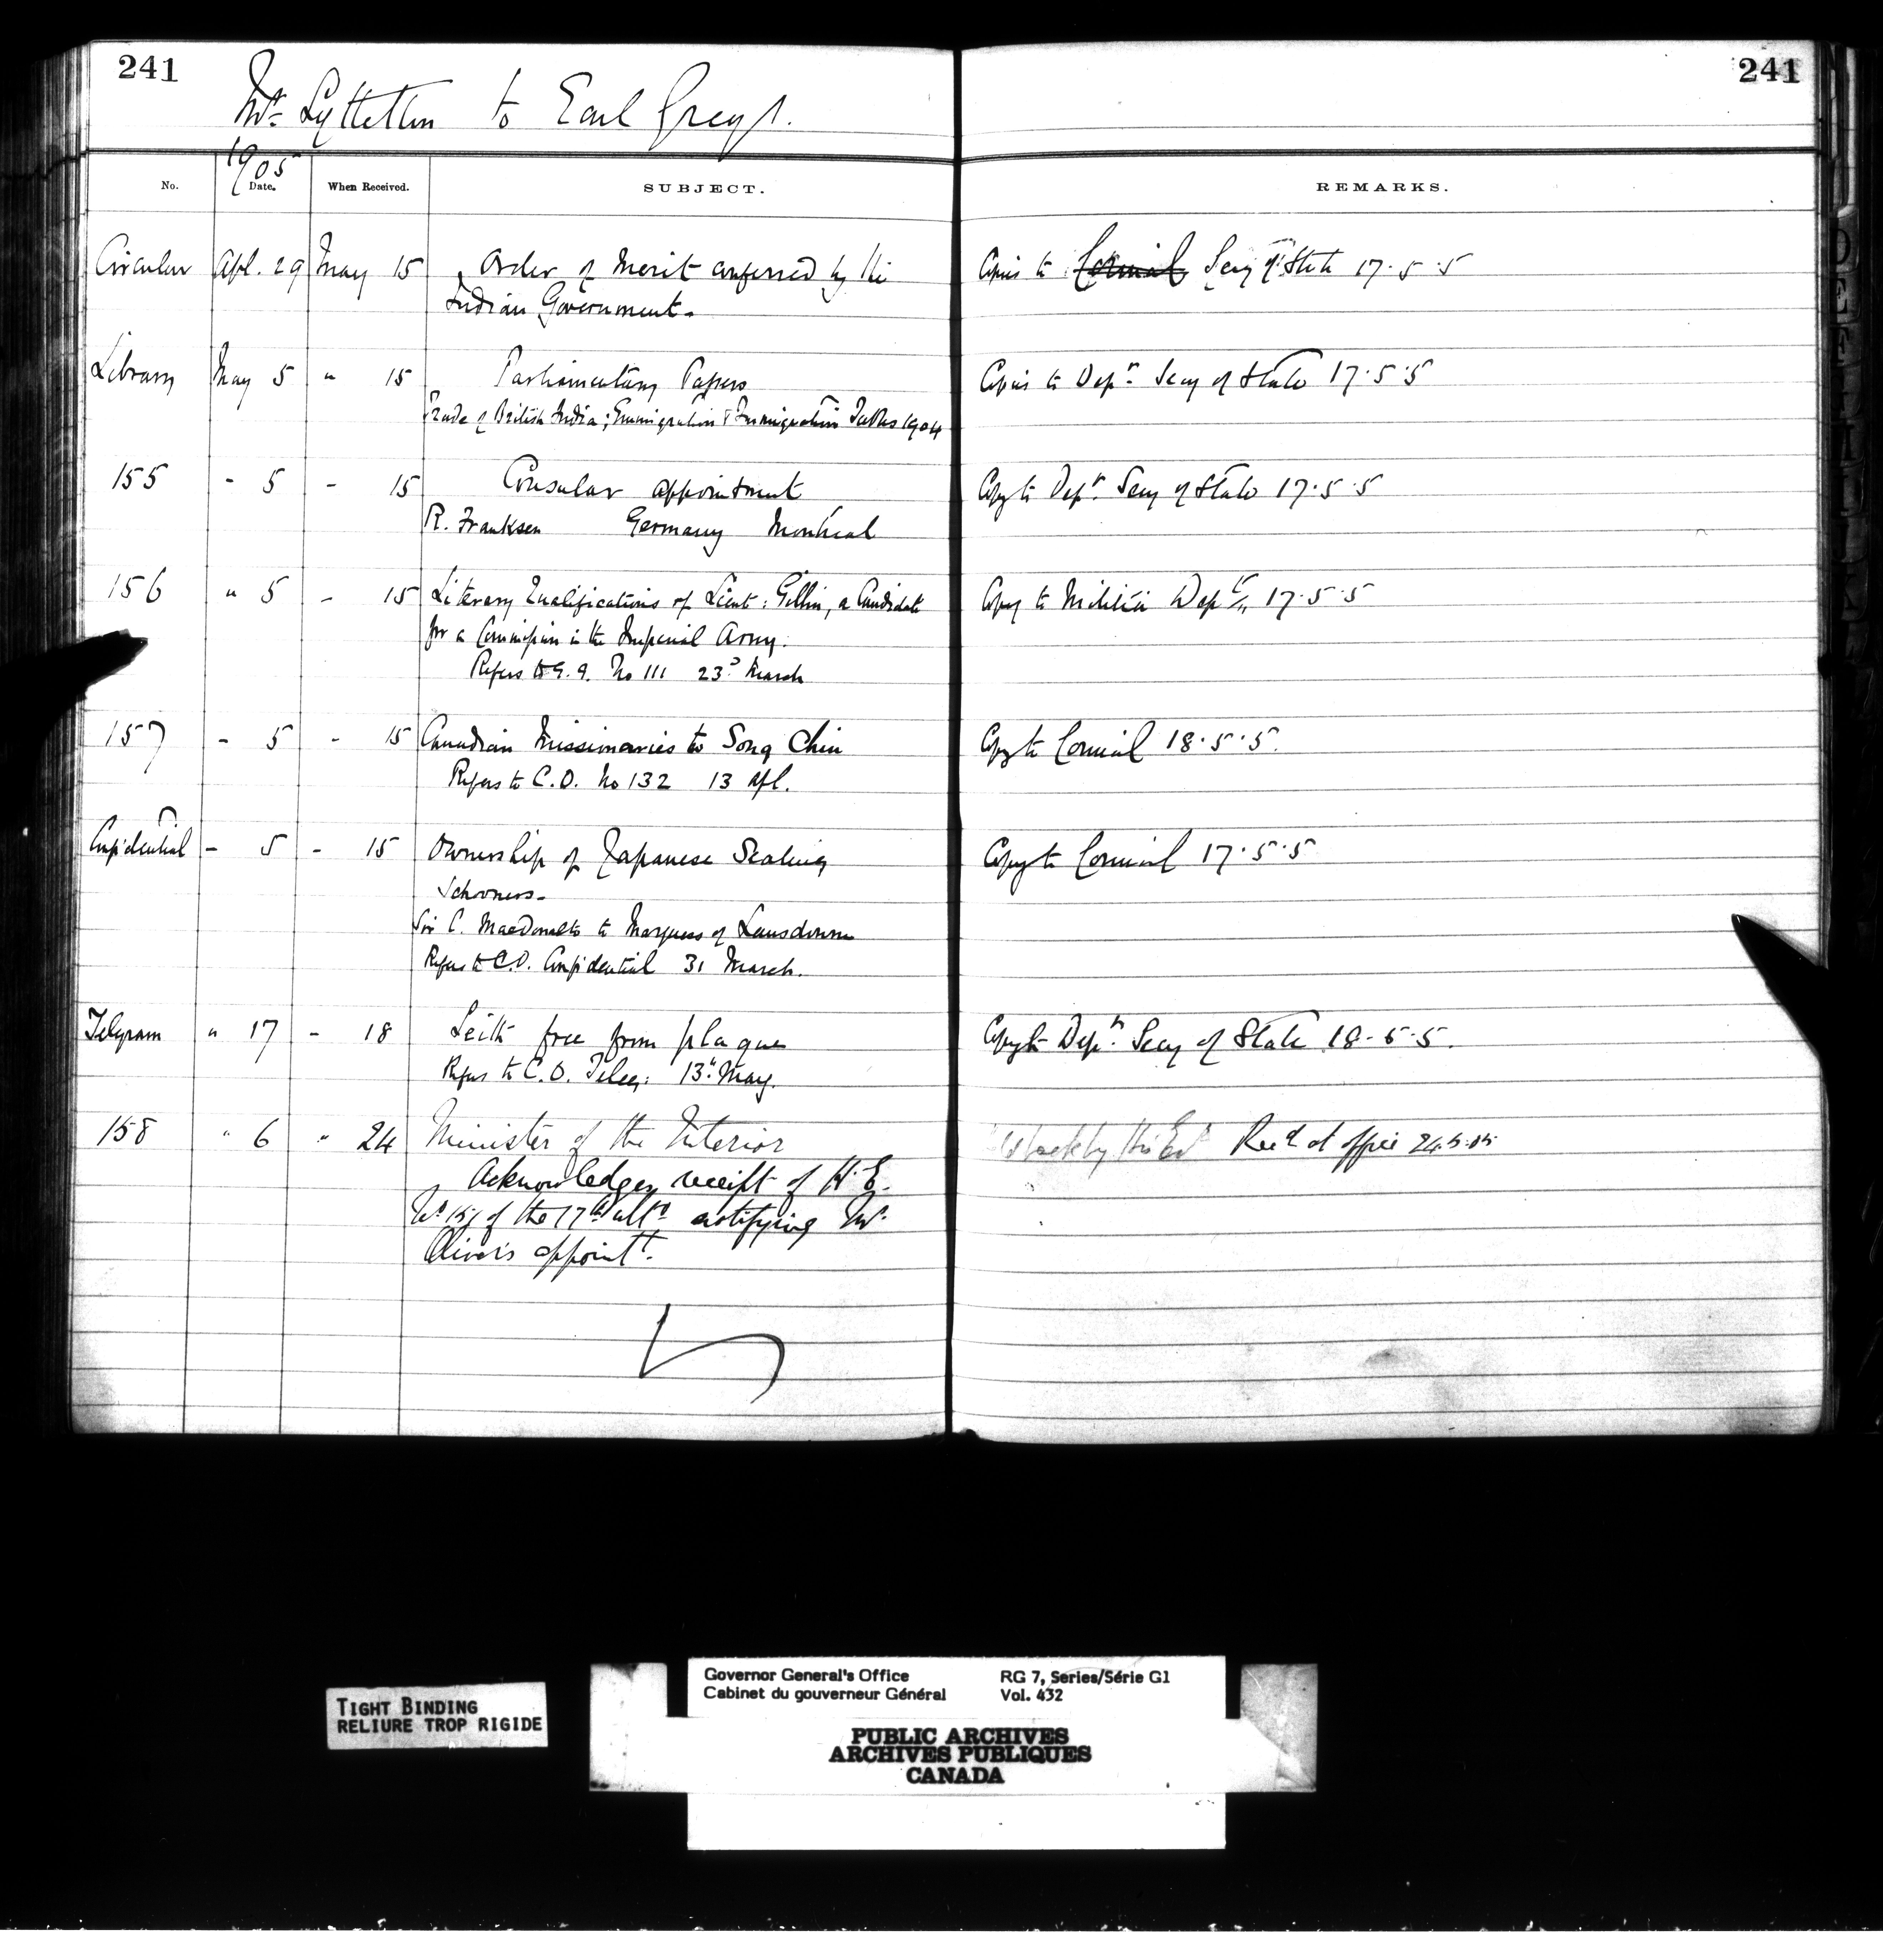 241
241
Mr. Lyttelton to Earl Grey.
1905
No. Date. When Received. SUBJECT. REMARKS.
Circular Apl. 29 May 15 Order of Merit conferred by the Copies to Council Secy of State 17.5.5
Indian Government.
Library May 5 " 15 Parliamentary Papers Copies to Depr. Secy of State 17.5.5
Trade of British India; Emigration & Immigration Tables 1904
155 - 5 - 15 Consular appointment Copy to Depr. Secy of State 17.5.5
R. Franksen Germany Montreal
156 " 5 - 15 Literary Qualifications of Lieut: Gillin, a Candidate Copy to Militia Dept 17.5.5
for a Commission in the Imperial Army.
Refers to G.G. No 111 23d March
157 - 5 - 15 Canadian Missionaries to Song Chin Copy to Council 18.5.5.
Refers to C.O. No 132 13 Apl.
Confidential - 5 - 15 Ownership of Japanese Sealing Copy to Council 17.5.5
Schooners-
Sir C. MacDonald to Marquess of Lansdowne
Refers to C.O. Confidential 31 March.
Telegram " 17 - 18 Leith free from plague Copy to Depr. Secy of State 18.5.5.
Refers to C.O. Teleg: 13th May.
158 " 6 " 24 Minister of the Interior back by His Ex Recd at office 24.5.05
Acknowledges receipt of H.E.
No 151 of the 17th ulto notifying Mr.
Oliver's appointt.
TIGHT BINDING
RELIURE TROP RIGIDE
Governor General's Office RG 7, Series/Série G1
Cabinet du gouverneur Général Vol. 432
PUBLIC ARCHIVES
ARCHIVES PUBLIQUES
CANADA